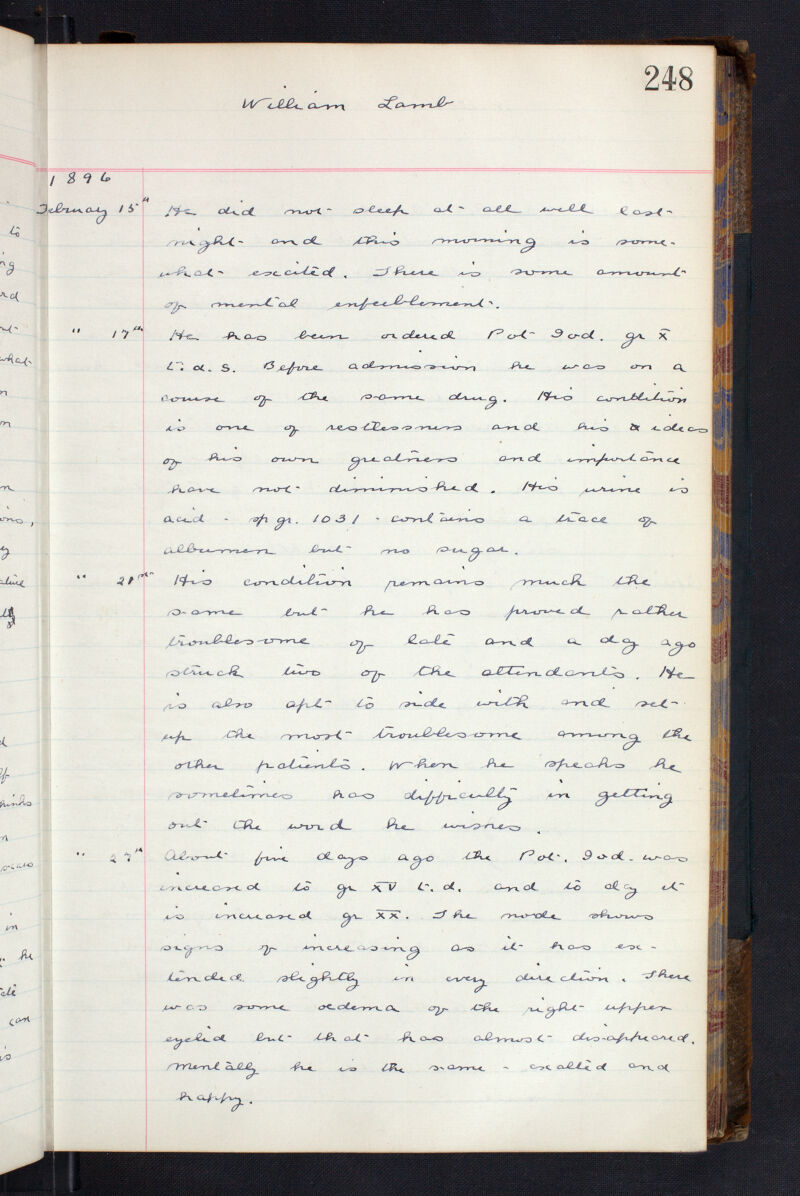 248
William Lamb
1896
February 15th He did not sleep at all well last
night and this morning is some-
what excited. There is some amount
of mental enfeeblement.
" 17th He has been ordered Pot Iod. gr X
t.d.s. Before admission he was on a
course of the same drug. His condition
is one of restlessness and his ideas
of his own greatness and importance
have not diminished. His urine is
acid - sp gr. 1031 - contains a trace of
albumen but no sugar.
" 21st His condition remains much the
same but he has proved rather
troublesome of late and a day ago
struck two of the attendants. He
is also apt to side with and set
up the most troublesome among the
other patients. When he speaks he
sometimes has difficulty in getting
out the word he wishes.
" 27th About five days ago the Pot. Iod. was
increased to gr XV t.d. and to day it
is increased gr XX. The node shows
signs of increasing as it has ex-
tended slightly in every direction. There
was some oedema of the right upper
eyelid but that has almost disappeared.
Mentally he is the same - exalted and
happy.